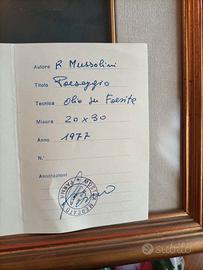 Autore R. Mussolini
Titolo Paesaggio
Tecnica olio su Faesite
Misura 20 x 30
Anno 1977
N.°
Annotazioni
subito